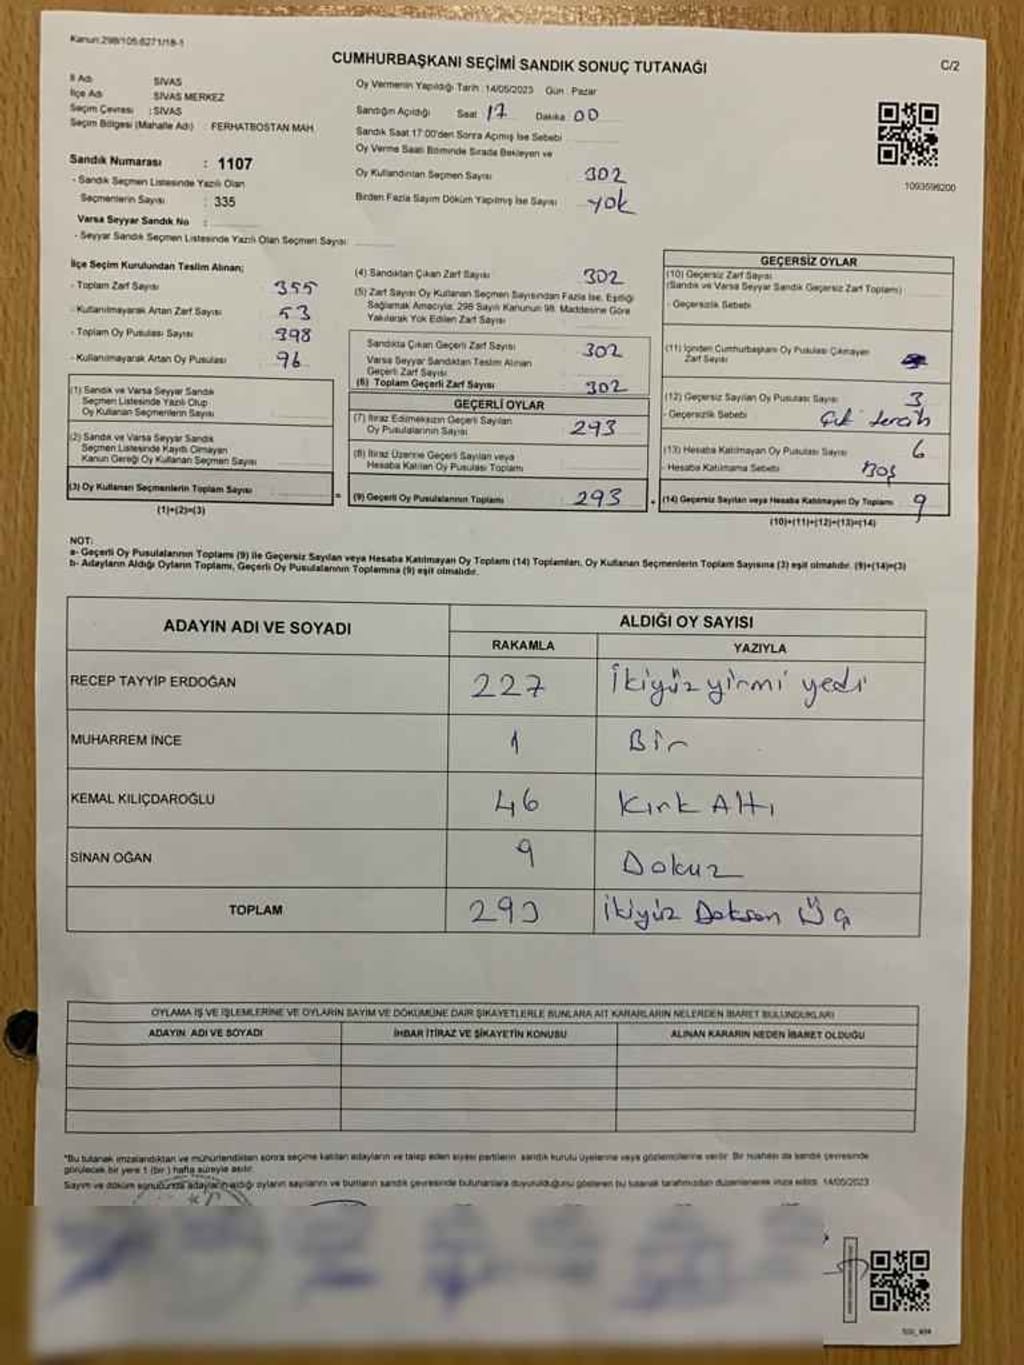 Kanun:298/105:6271/18-1
CUMHURBAŞKANI SEÇİMİ SANDIK SONUÇ TUTANAĞI
C/2
İl Adı SİVAS
İlçe Adı SİVAS MERKEZ
Seçim Çevresi : SİVAS
Seçim Bölgesi (Mahalle Adı) : FERHATBOSTAN MAH.
Sandık Numarası : 1107
- Sandık Seçmen Listesinde Yazılı Olan
Seçmenlerin Sayısı : 335
Varsa Seyyar Sandık No :
- Seyyar Sandık Seçmen Listesinde Yazılı Olan Seçmen Sayısı:
Oy Vermenin Yapıldığı Tarih : 14/05/2023 Gün : Pazar
Sandığın Açıldığı Saat 17 Dakika 00
Sandık Saat 17:00'den Sonra Açılmış İse Sebebi
Oy Verme Saati Bitiminde Sırada Bekleyen ve
Oy Kullandırılan Seçmen Sayısı 302
Birden Fazla Sayım Döküm Yapılmış İse Sayısı yok
1093596200
İlçe Seçim Kurulundan Teslim Alınan;
- Toplam Zarf Sayısı 355
- Kullanılmayarak Artan Zarf Sayısı 53
- Toplam Oy Pusulası Sayısı 398
- Kullanılmayarak Artan Oy Pusulası 96
(1) Sandık ve Varsa Seyyar Sandık
Seçmen Listesinde Yazılı Olup
Oy Kullanan Seçmenlerin Sayısı
(2) Sandık ve Varsa Seyyar Sandık
Seçmen Listesinde Kayıtlı Olmayan
Kanun Gereği Oy Kullanan Seçmen Sayısı
(3) Oy Kullanan Seçmenlerin Toplam Sayısı
(1)+(2)=(3)
=
(4) Sandıktan Çıkan Zarf Sayısı 302
(5) Zarf Sayısı Oy Kullanan Seçmen Sayısından Fazla İse, Eşitliği
Sağlamak Amacıyla; 298 Sayılı Kanunun 98. Maddesine Göre
Yakılarak Yok Edilen Zarf Sayısı
Sandıkta Çıkan Geçerli Zarf Sayısı 302
Varsa Seyyar Sandıktan Teslim Alınan
Geçerli Zarf Sayısı
(6) Toplam Geçerli Zarf Sayısı 302
GEÇERLİ OYLAR
(7) İtiraz Edilmeksizin Geçerli Sayılan
Oy Pusulalarının Sayısı 293
(8) İtiraz Üzerine Geçerli Sayılan veya
Hesaba Katılan Oy Pusulası Toplamı
(9) Geçerli Oy Pusulalarının Toplamı 293
+
GEÇERSİZ OYLAR
(10) Geçersiz Zarf Sayısı
(Sandık ve Varsa Seyyar Sandık Geçersiz Zarf Toplamı)
- Geçersizlik Sebebi
(11) İçinden Cumhurbaşkanı Oy Pusulası Çıkmayan
Zarf Sayısı
(12) Geçersiz Sayılan Oy Pusulası Sayısı 3
- Geçersizlik Sebebi Çok tercih
(13) Hesaba Katılmayan Oy Pusulası Sayısı 6
- Hesaba Katılmama Sebebi Boş
(14) Geçersiz Sayılan veya Hesaba Katılmayan Oy Toplamı 9
(10)+(11)+(12)+(13)=(14)
NOT:
a- Geçerli Oy Pusulalarının Toplamı (9) ile Geçersiz Sayılan veya Hesaba Katılmayan Oy Toplamı (14) Toplamları, Oy Kullanan Seçmenlerin Toplam Sayısına (3) eşit olmalıdır. (9)+(14)=(3)
b- Adayların Aldığı Oyların Toplamı, Geçerli Oy Pusulalarının Toplamına (9) eşit olmalıdır.
ADAYIN ADI VE SOYADI ALDIĞI OY SAYISI
RAKAMLA YAZIYLA
RECEP TAYYİP ERDOĞAN 227 İkiyüz yirmi yedi
MUHARREM İNCE 1 Bir
KEMAL KILIÇDAROĞLU 46 Kırk Altı
SİNAN OĞAN 9 Dokuz
TOPLAM 293 İkiyüz Doksan Üç
OYLAMA İŞ VE İŞLEMLERİNE VE OYLARIN SAYIM VE DÖKÜMÜNE DAİR ŞİKAYETLERLE BUNLARA AİT KARARLARIN NELERDEN İBARET BULUNDUKLARI
ADAYIN ADI VE SOYADI İHBAR İTİRAZ VE ŞİKAYETİN KONUSU ALINAN KARARIN NEDEN İBARET OLDUĞU
*Bu tutanak imzalandıktan ve mühürlendikten sonra seçime katılan adayların ve talep eden siyasi partilerin sandık kurulu üyelerine veya gözlemcilerine verilir. Bir nüshası da sandık çevresinde
görülecek bir yere 1 (bir) hafta süreyle asılır.
Sayım ve döküm sonucunda adayların aldığı oyların sayılarını ve bunların sandık çevresinde bulunanlara duyurulduğunu gösteren bu tutanak tarafımızdan düzenlenerek imza edildi. 14/05/2023